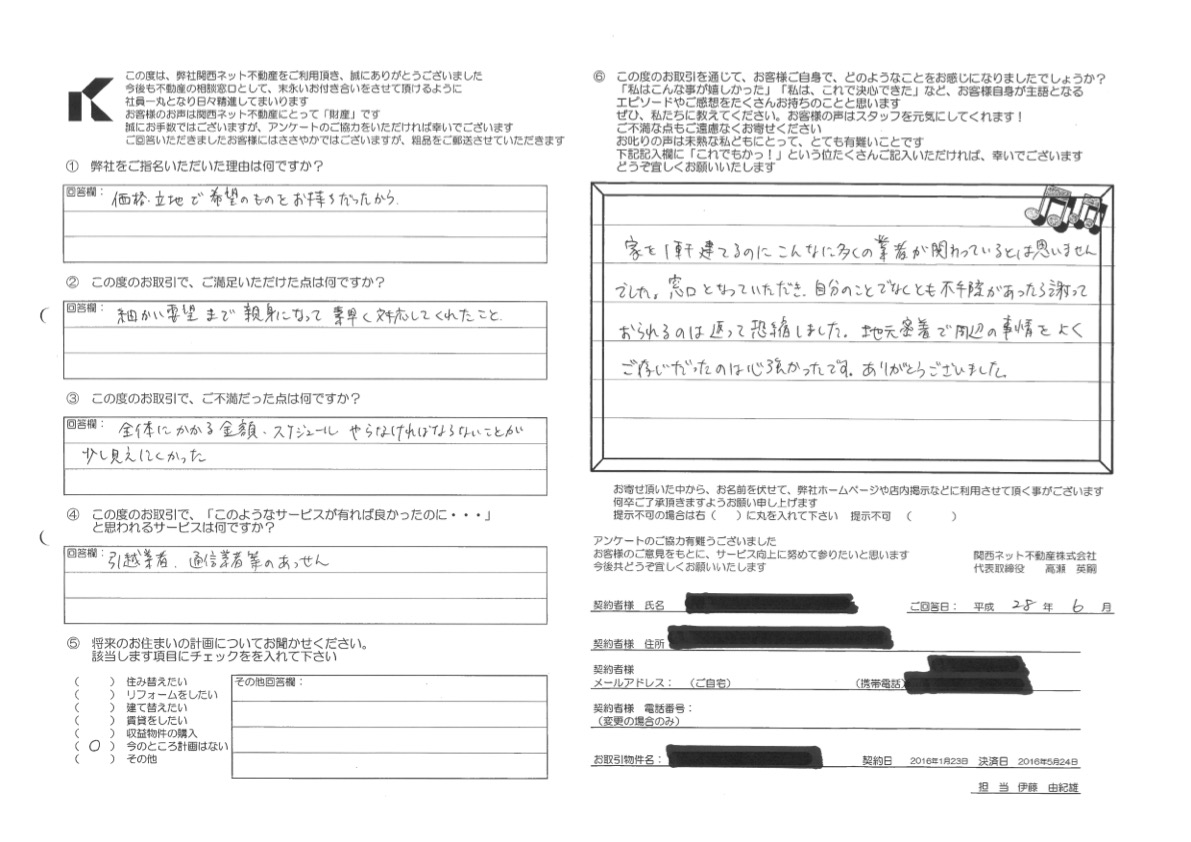 この度は、弊社関西ネット不動産をご利用頂き、誠にありがとうございました
今後も不動産の相談窓口として、末永いお付き合いをさせて頂けるように
社員一丸となり日々精進してまいります
お客様のお声は関西ネット不動産にとって「財産」です
誠にお手数ではございますが、アンケートのご協力をいただければ幸いでございます
ご回答いただきましたお客様にはささやかではございますが、粗品をご郵送させていただきます
① 弊社をご指名いただいた理由は何ですか？
回答欄： 価格・立地で希望のものをお持ちだったから
② この度のお取引で、ご満足いただけた点は何ですか？
回答欄： 細かい要望まで親身になって素早く対応してくれたこと
③ この度のお取引で、ご不満だった点は何ですか？
回答欄： 全体にかかる金額・スケジュール やらなければならないことが
少し見えにくかった
④ この度のお取引で、「このようなサービスが有れば良かったのに・・・」
と思われるサービスは何ですか？
回答欄： 引越業者、通信業者等のあっせん
⑤ 将来のお住まいの計画についてお聞かせください。
該当します項目にチェックをを入れて下さい
（　　）住み替えたい
（　　）リフォームをしたい
（　　）建て替えたい
（　　）賃貸をしたい
（　　）収益物件の購入
（ ○ ）今のところ計画はない
（　　）その他
その他回答欄：
⑥ この度のお取引を通じて、お客様ご自身で、どのようなことをお感じになりましたでしょうか？
「私はこんな事が嬉しかった」「私は、これで決心できた」など、お客様自身が主語となる
エピソードやご感想をたくさんお持ちのことと思います
ぜひ、私たちに教えてください。お客様の声はスタッフを元気にしてくれます！
ご不満な点もご遠慮なくお寄せください
お叱りの声は未熟な私どもにとって、とても有難いことです
下記記入欄に「これでもかっ！」という位たくさんご記入いただければ、幸いでございます
どうぞ宜しくお願いいたします
家を1軒建てるのにこんなに多くの業者が関わっているとは思いません
でした。窓口となっていただき、自分のことでなくとも不手際があったら謝って
おられるのは返って恐縮しました。地元密着で周辺の事情をよく
ご存じだったのは心強かったです。ありがとうございました。
お寄せ頂いた中から、お名前を伏せて、弊社ホームページや店内掲示などに利用させて頂く事がございます
何卒ご了承頂きますようお願い申し上げます
提示不可の場合は右（　　）に丸を入れて下さい　提示不可（　　　）
アンケートのご協力有難うございました
お客様のご意見をもとに、サービス向上に努めて参りたいと思います
今後共どうぞ宜しくお願いいたします
関西ネット不動産株式会社
代表取締役　高瀬　英嗣
契約者様 氏名
ご回答日： 平成 28 年 6 月
契約者様 住所
契約者様
メールアドレス：（ご自宅）　（携帯電話）
契約者様 電話番号：
（変更の場合のみ）
お取引物件名：　契約日 2016年1月23日 決済日 2016年5月24日
担当 伊藤 由紀雄